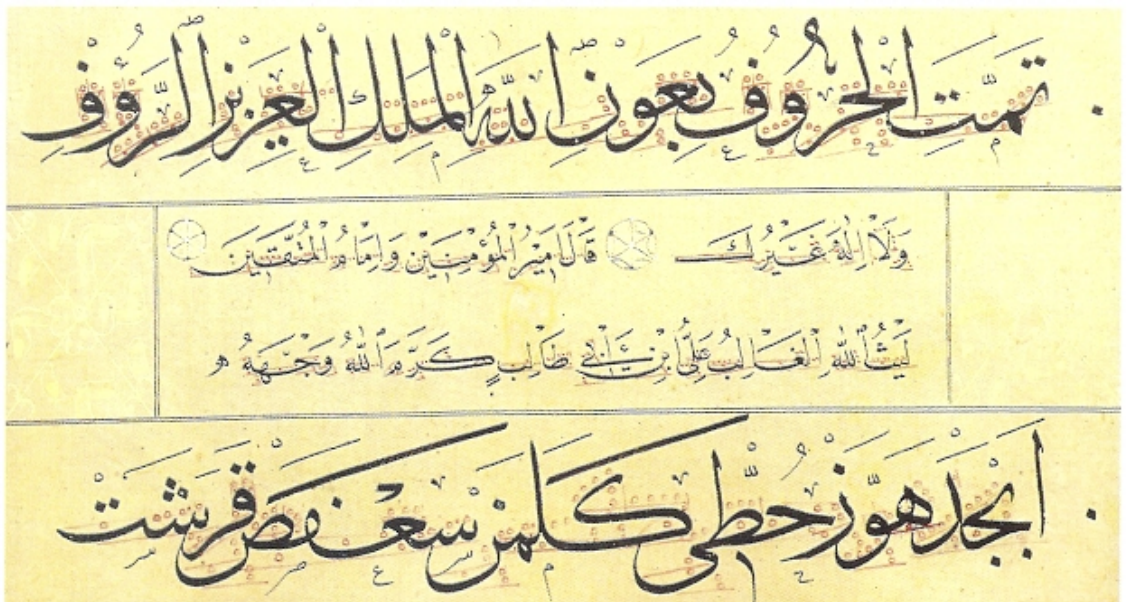 تمت الحروف بعون الله الملك العزيز الرؤف
ولا إله غيرك قال أمير المؤمنين وإمام المتقين
ليث الله الغالب علي بن أبي طالب كرم الله وجهه
ابجد هوز حطي كلمن سعفص قرشت